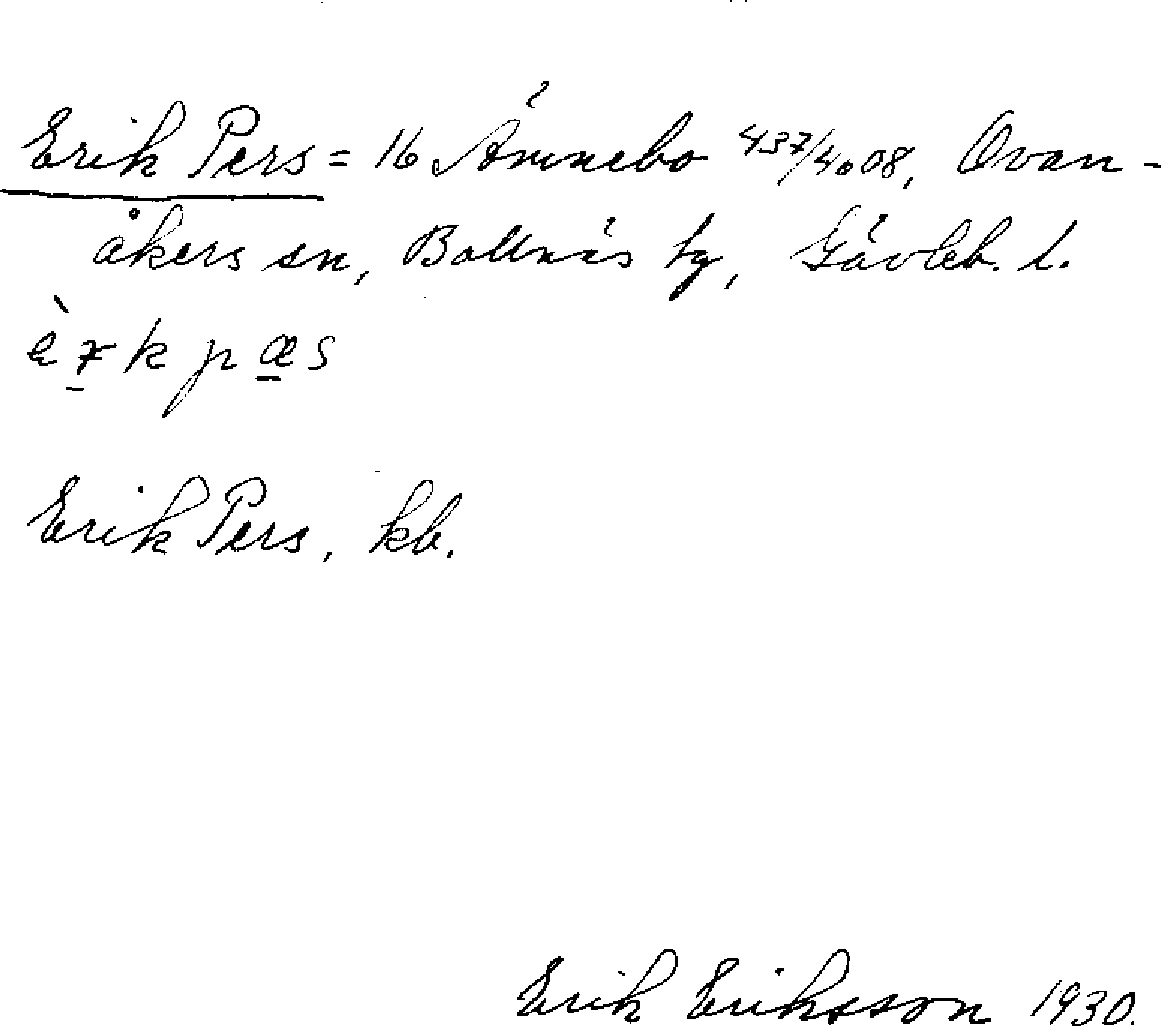 Erik Pers = 16 Ämnebo 437/4008, Ovan-
åkers sn, Bollnäs tg, Gävleb. l.
Erik Pers, kb.
Erik Eriksson 1930.